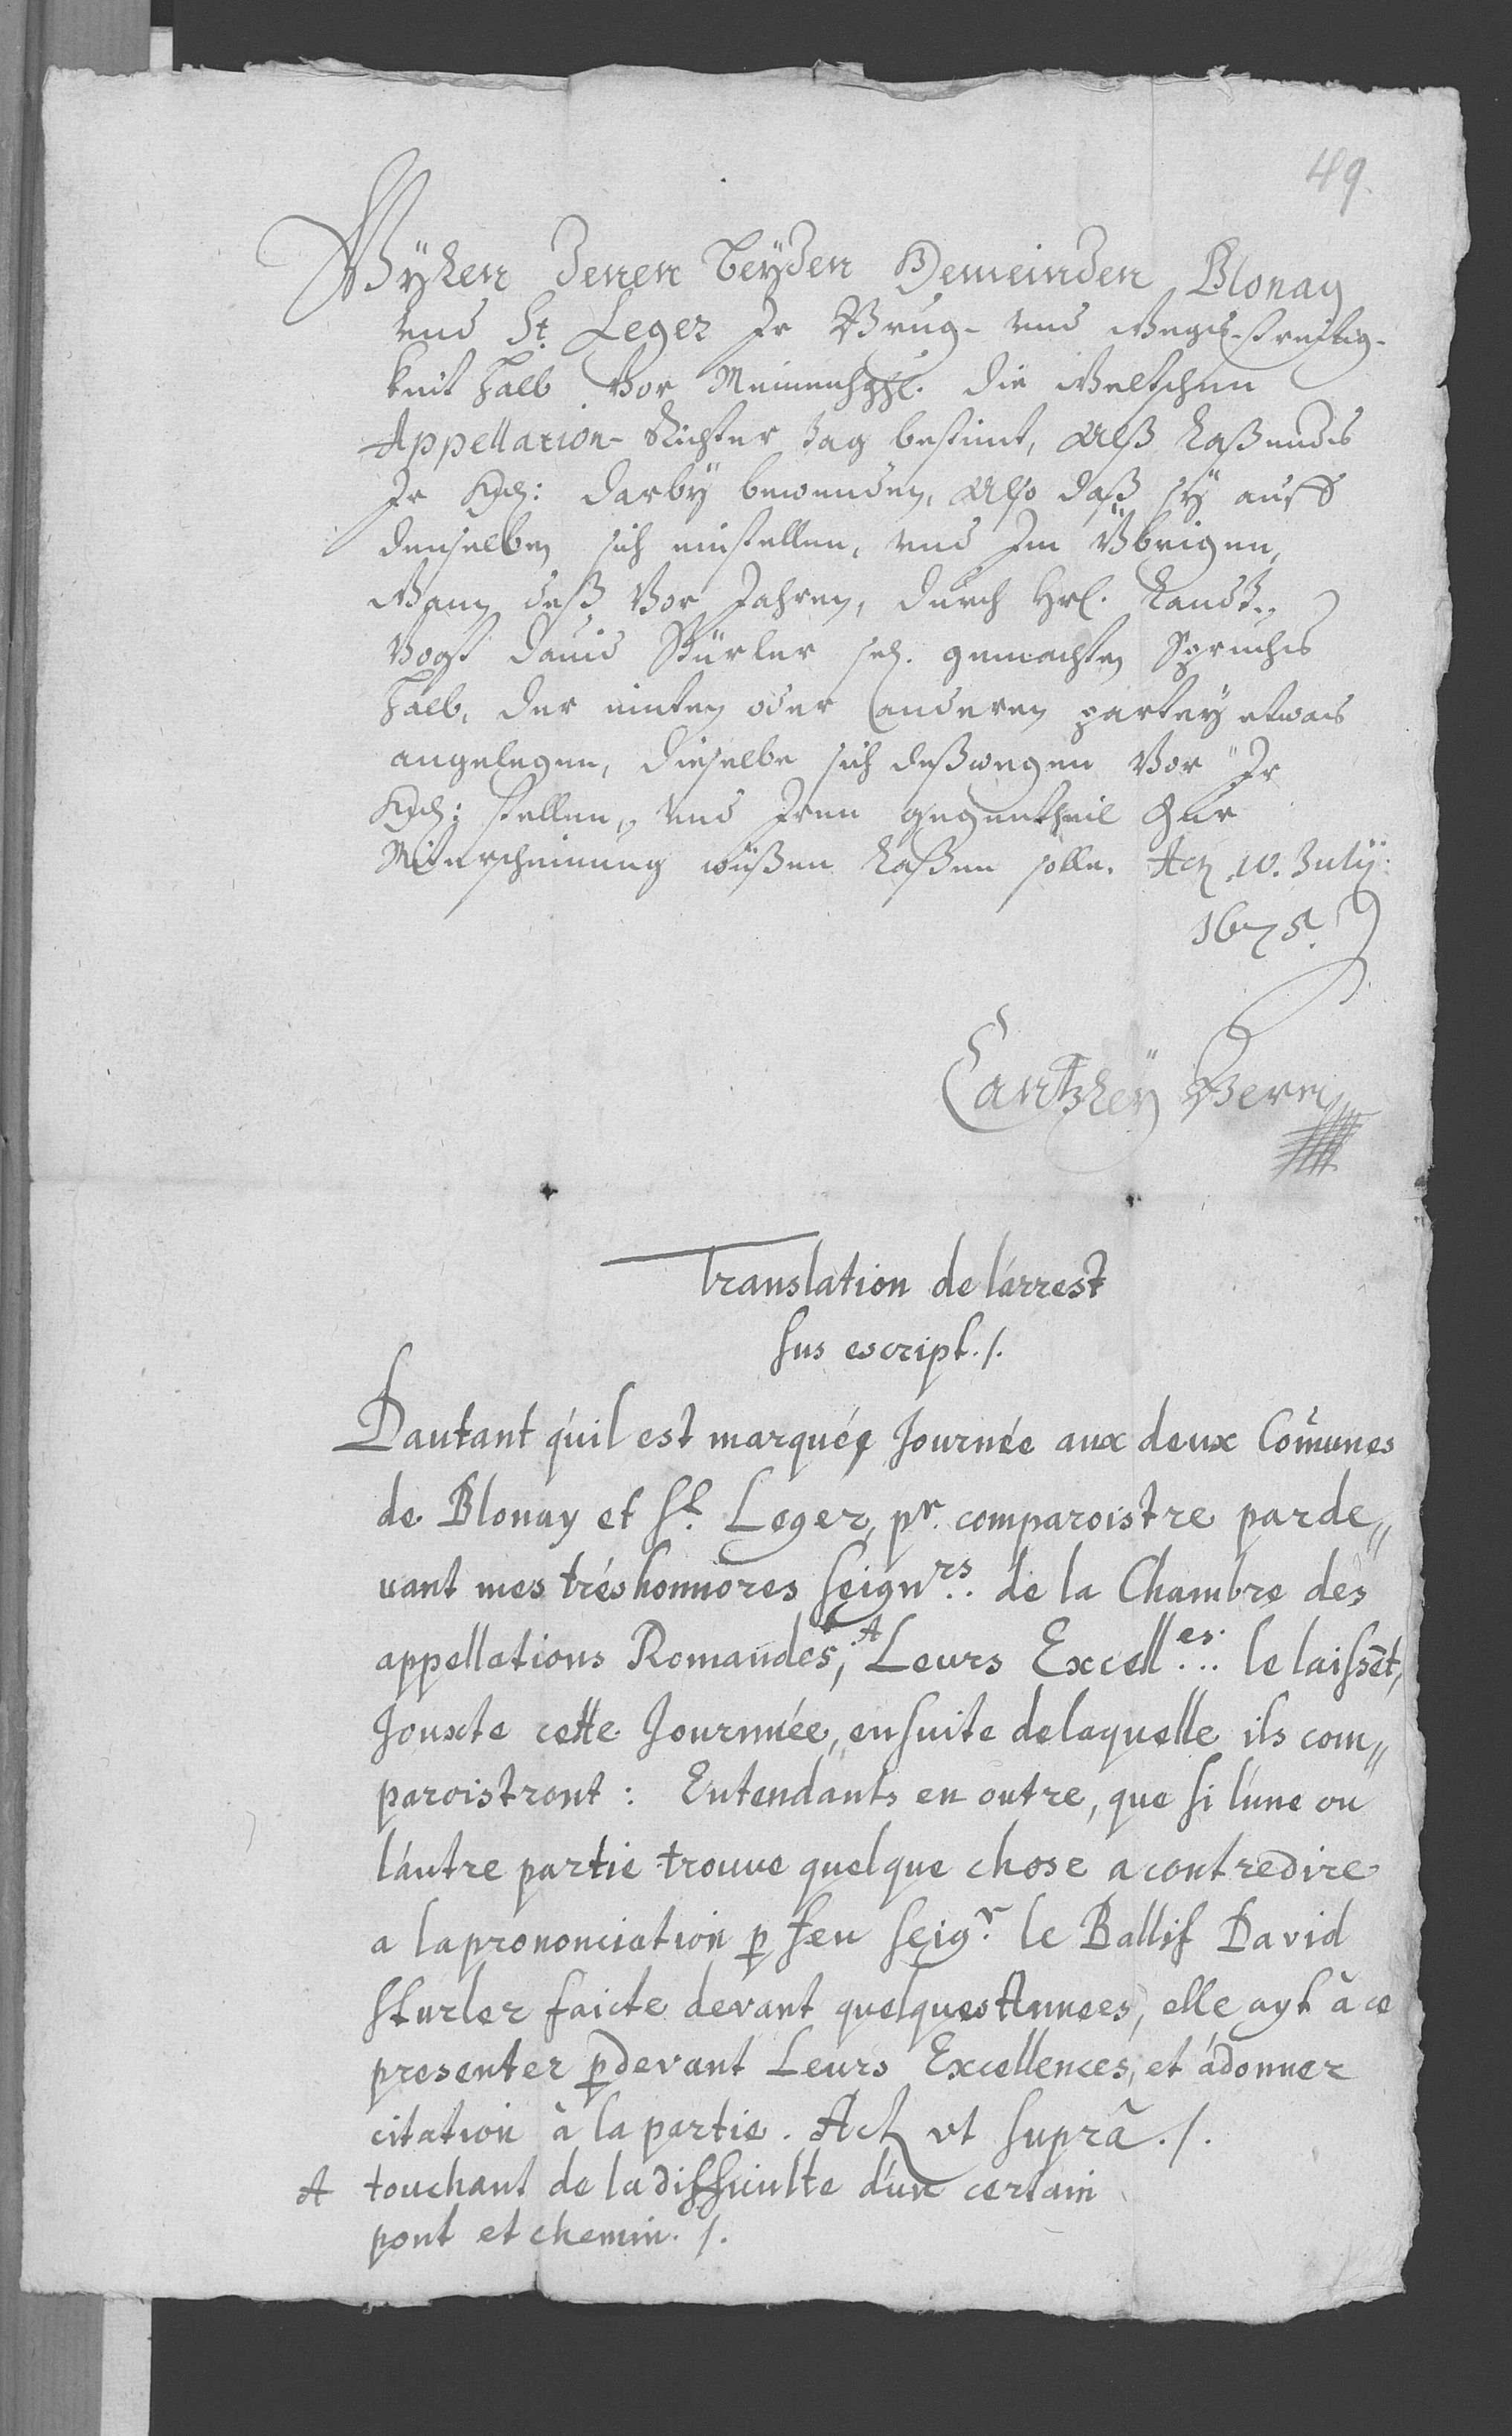 49.
Wylen denen beÿden Gemeinden Blonay
vnd St. Leger Jr Brug- vnd Wegs-streitig-
keit halb vor Meinenhghl. die Weltschen
Appellation-Richter tag bestimt, Alß Laßends
Jr Gn: darbÿ bewenden, Also daß sÿ auff
denselben sich einstellen, vnd Im Übrigen,
Wann deß vor Jahren, durch Hrl. Landt„
Vogt Dauid Stürler sel. gemachten Spruchs
halb, der einten oder anderen partey etwas
angelegen, dieselbe sich deßwegen vor Jr
Gn: stellen„ vnd Jren gegentheil zur
Miterscheinung wüßen laßen solle. Act. 10. Julÿ.
1675.
Cantzleÿ Bern
Translation de l'arrest
sus escript./.
Dautant qu'il est marquée Journée aux deux Com̃unes
de Blonay et St. Leger, pr. comparoistre parde„
uant mes tréshonnores Seignrs. de la Chambre des
appellations Romandes; A Leurs Excelles. le laissēt,
Jouxte cette Journnée, ensuite delaquelle ils com„
paroistront : Entendants en outre, que si l'une ou
l'autre partie trouue quelque chose a contredire
a laprononciation p feu Seigr. le Ballif David
Sturler faicte devant quelques Annees, elle ayt à ce
presenter pdevant Leurs Excellences, et àdonner
citation à la partie. Act vt suprà./.
A touchant de la difficulte d'un certain
pont et chemin./.